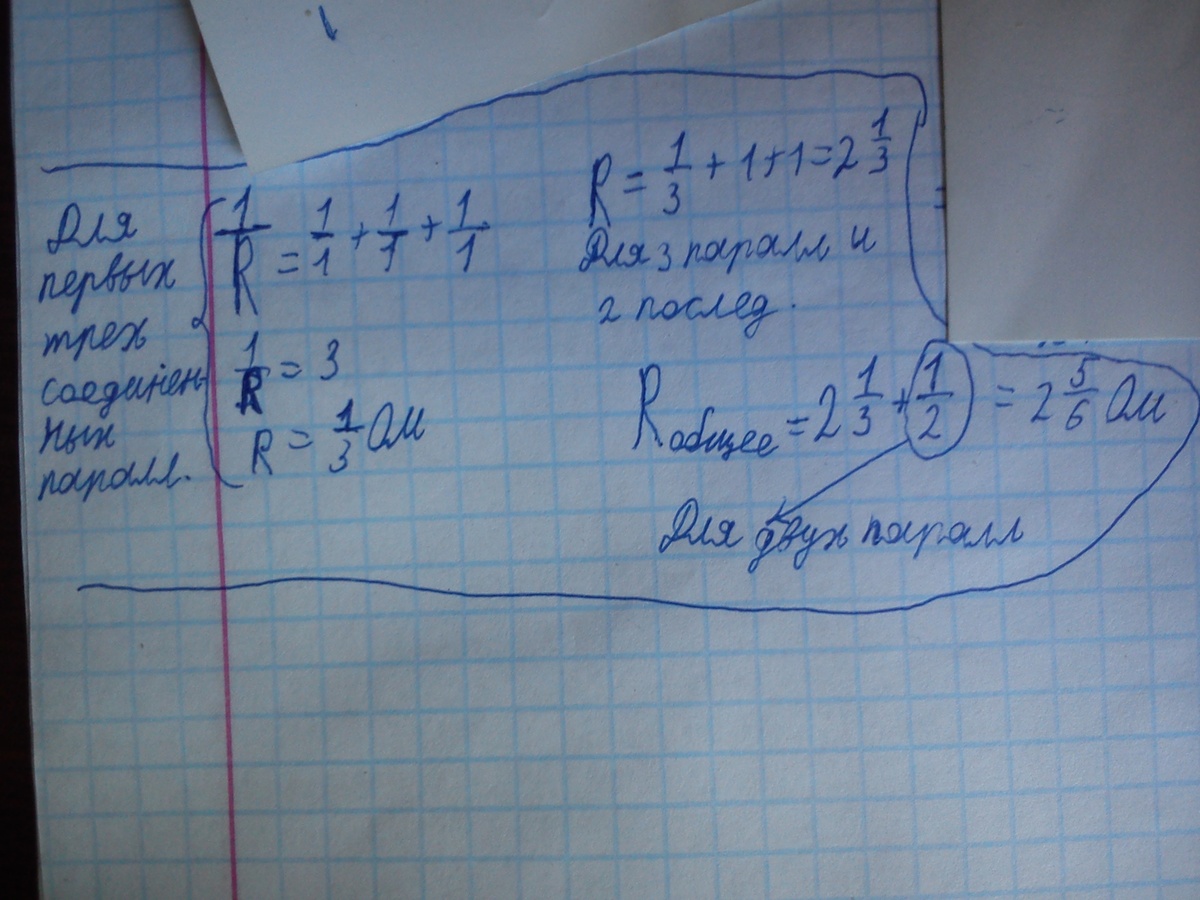 Для
первых
трех
соединен-
ных
паралл.
1/R = 1/1 + 1/1 + 1/1
1/R = 3
R = 1/3 Ом
R = 1/3 + 1 + 1 = 2 1/3
Для 3 паралл и
2 послед.
R общее = 2 1/3 + 1/2 = 2 5/6 Ом
Для двух паралл